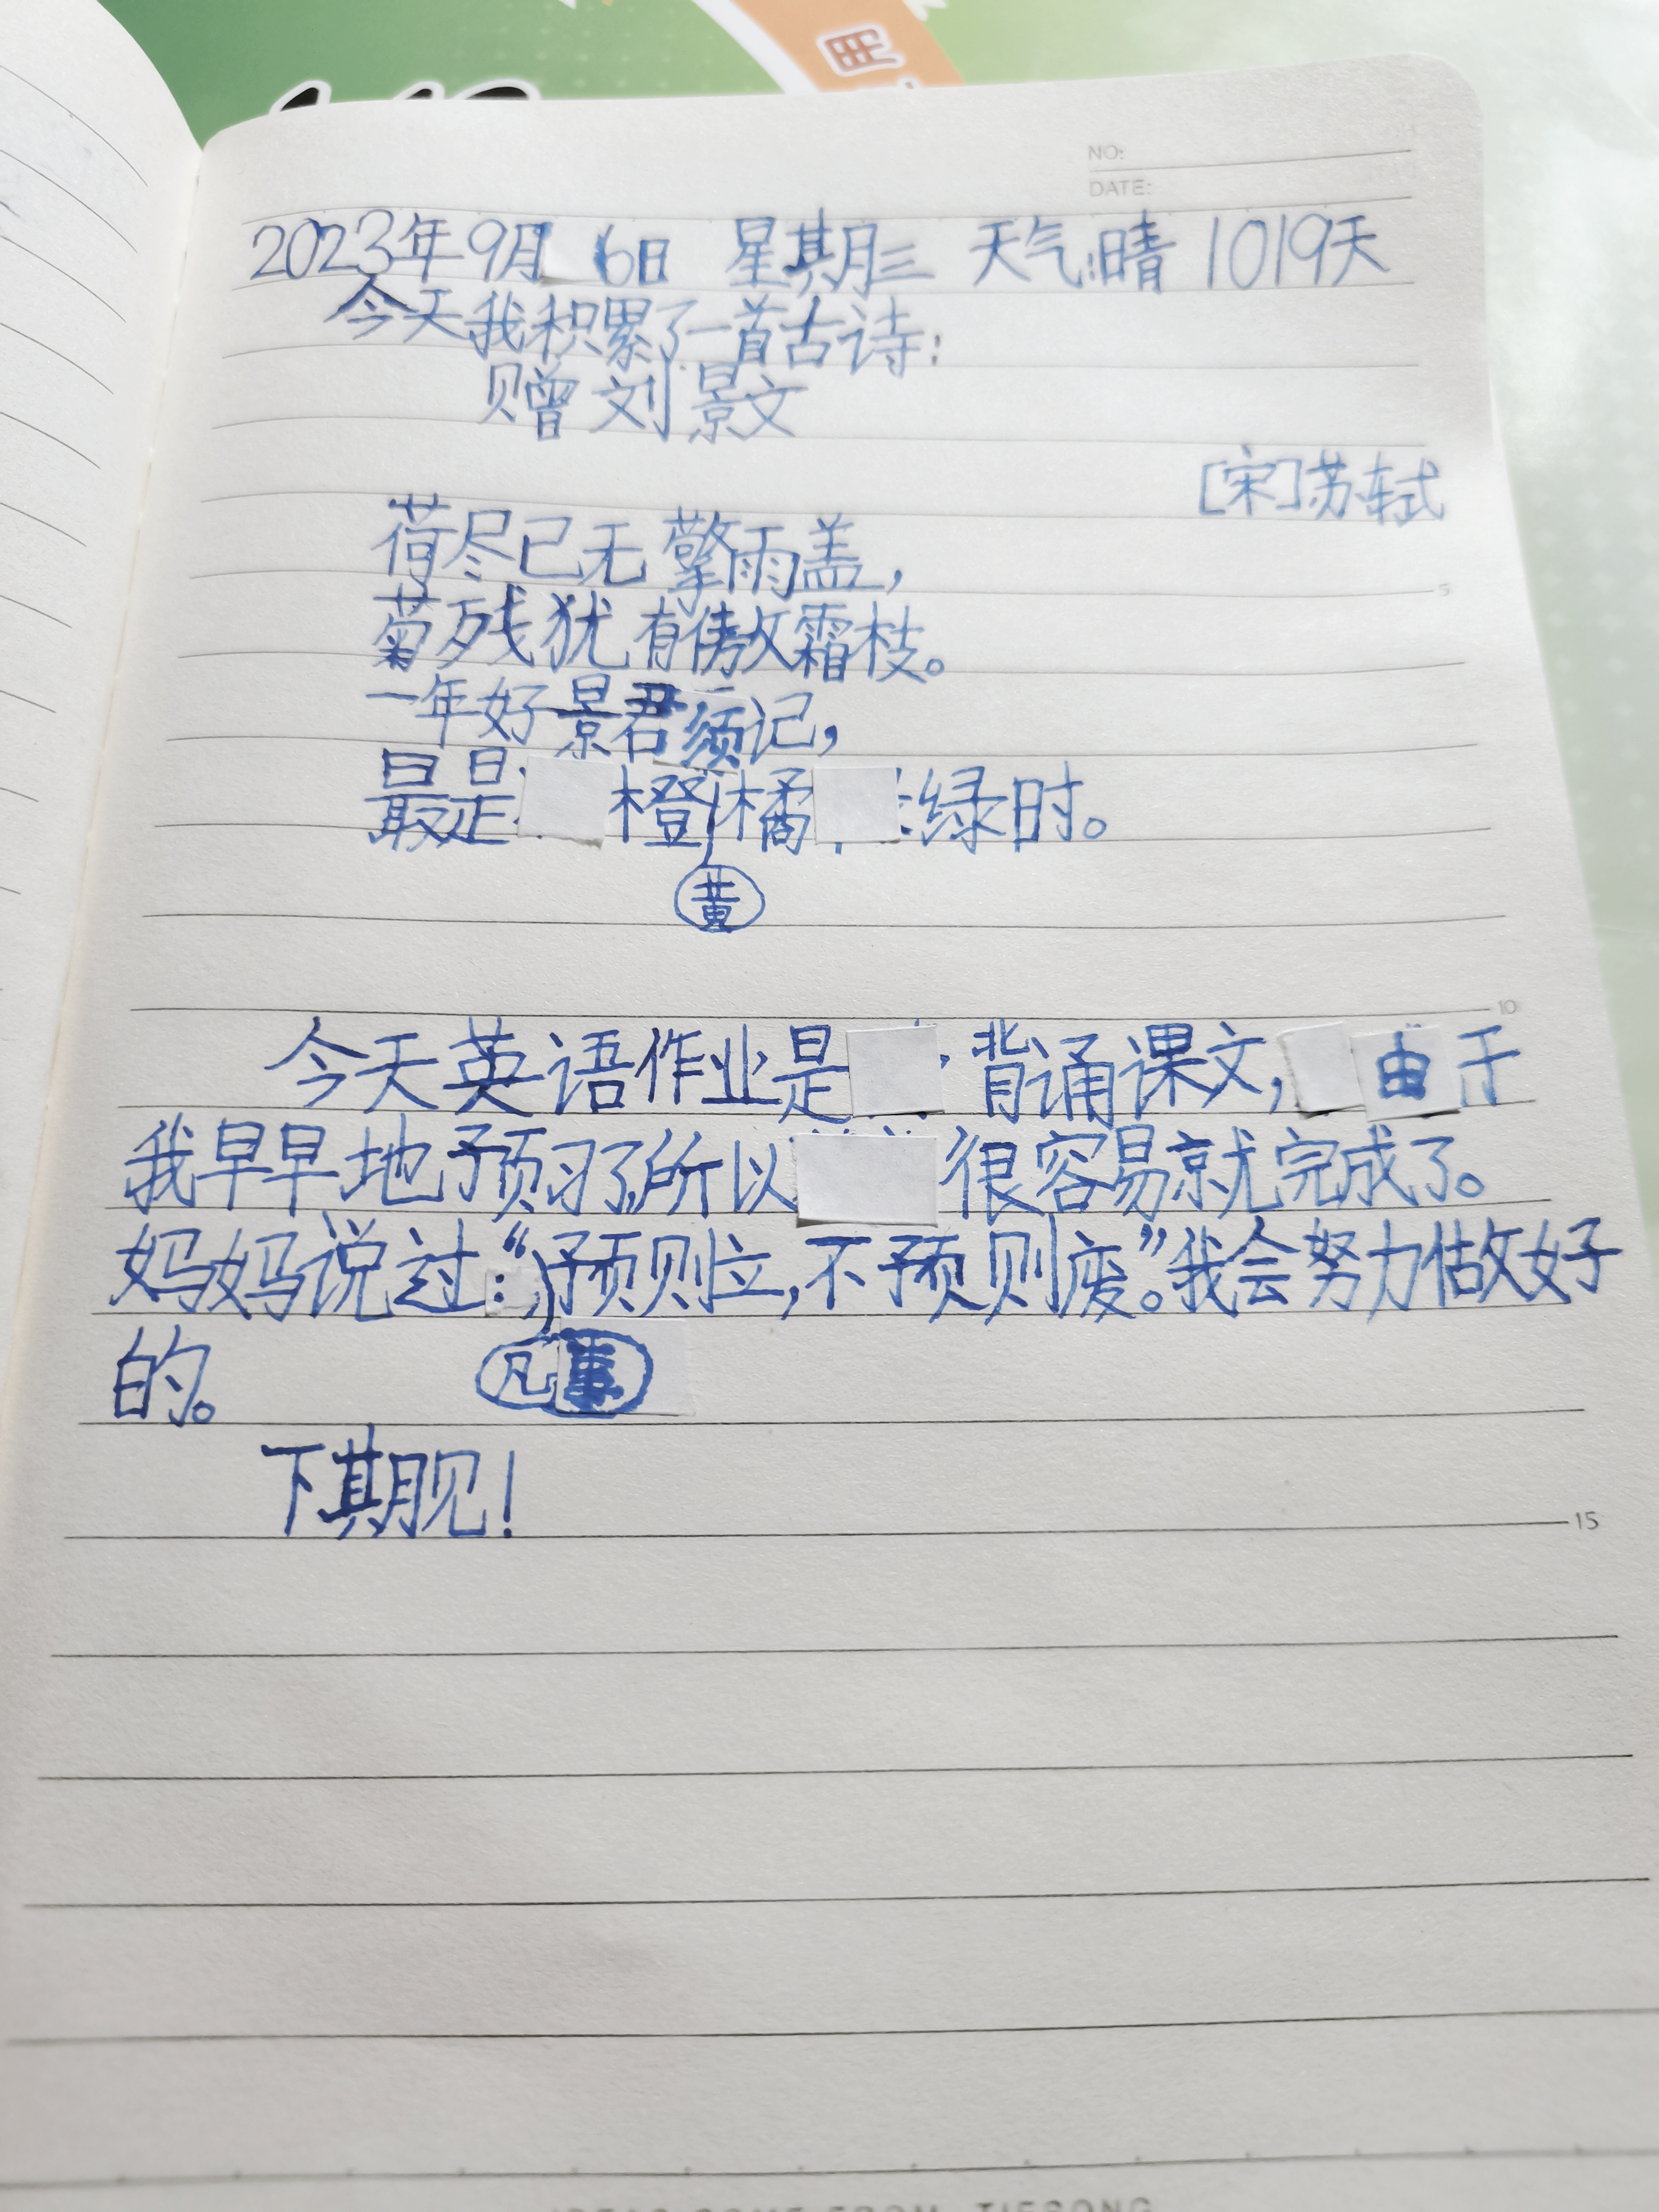 NO:
DATE:
2023年9月6日 星期三 天气:晴 1019天
今天我积累了一首古诗:
赠刘景文
[宋]苏轼
荷尽已无擎雨盖,
菊残犹有傲霜枝。
5
一年好景君须记,
最是橙黄橘绿时。
10
今天英语作业是背诵课文,由于
我早早地预习了,所以很容易就完成了。
妈妈说过:“凡事预则立,不预则废”。我会努力做好
的。
下期见!
15